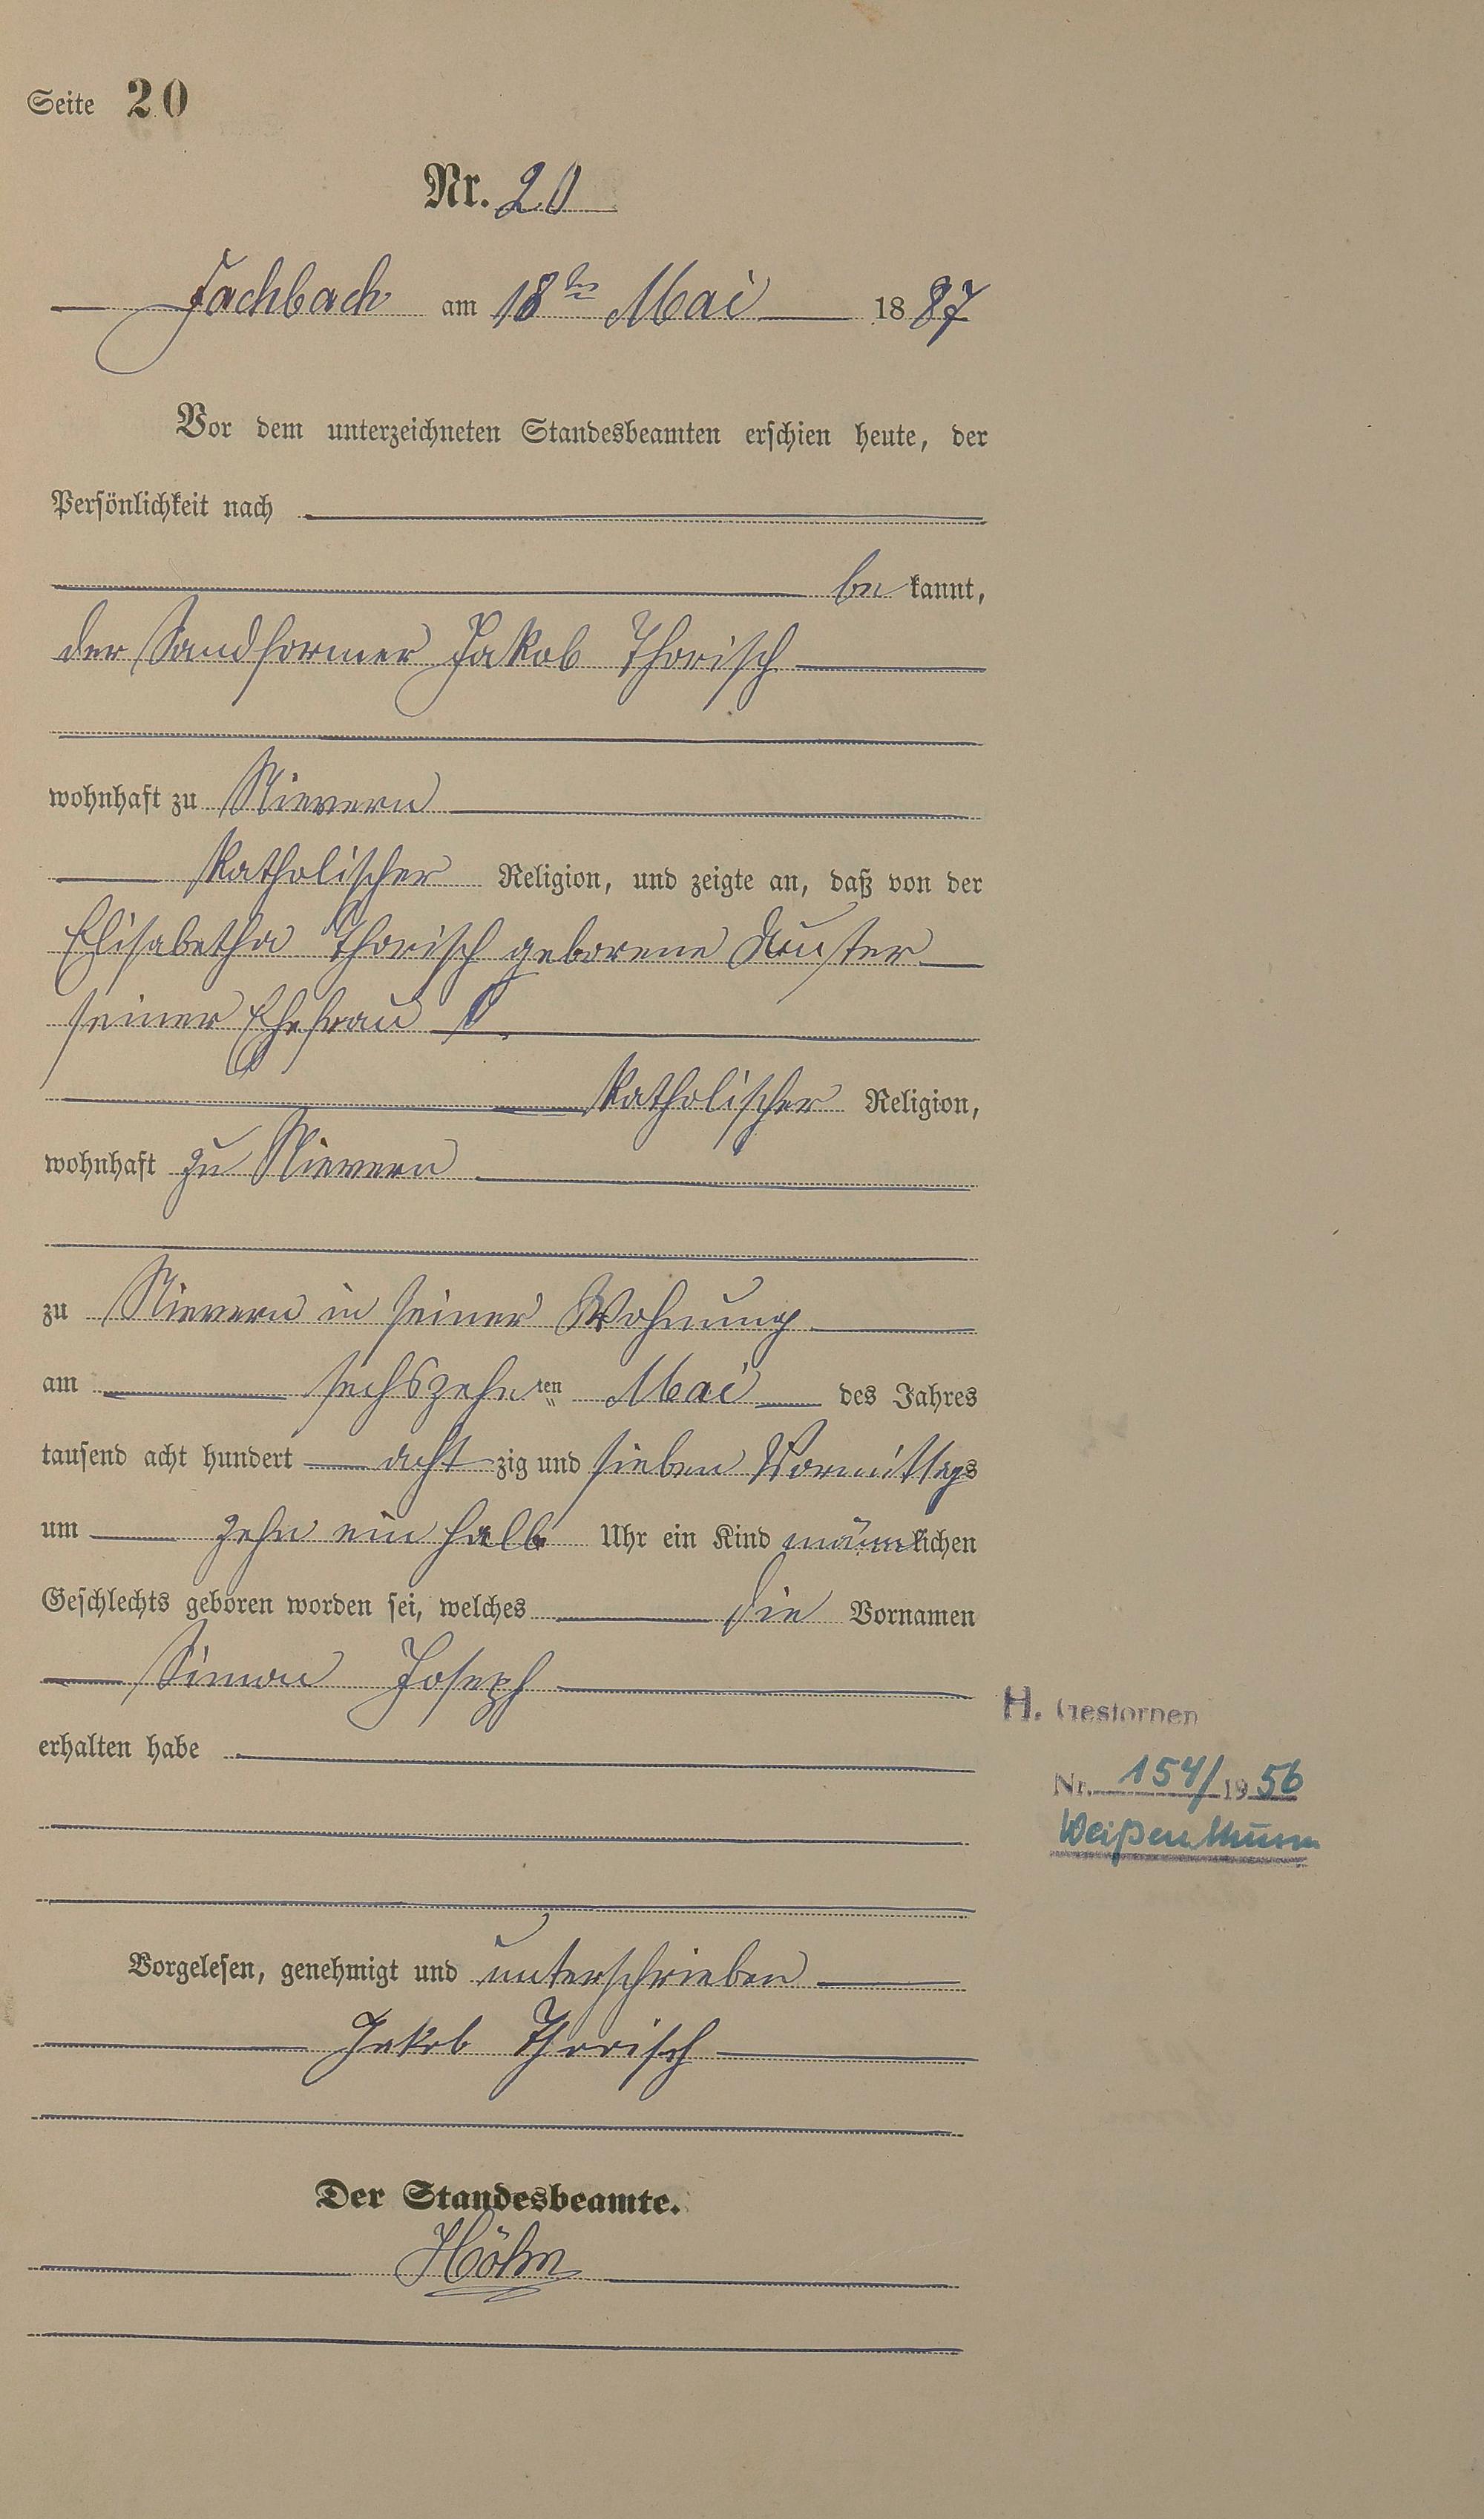 Seite 20
Nr. 20
Fachbach am 18ten Mai 1887
Vor dem unterzeichneten Standesbeamten erschien heute, der
Persönlichkeit nach
be kannt,
der Sandformer Jakob Thorisch
wohnhaft zu Nievern
katholischer Religion, und zeigte an, daß von der
Elisabetha Thorisch geborene
seiner Ehefrau
katholischer Religion,
wohnhaft zu Nievern
zu Nievern in seiner Wohnung
am sechszehnten Mai des Jahres
tausend acht hundert acht zig und sieben Vormittags
um zehn ein halb Uhr ein Kind männlichen
Geschlechts geboren worden sei, welches die Vornamen
Simon Joseph
erhalten habe
H. Gestorben
Nr. 154/1956
Weißenthurm
Vorgelesen, genehmigt und unterschrieben
Jakob Thorisch
Der Standesbeamte.
Höhn